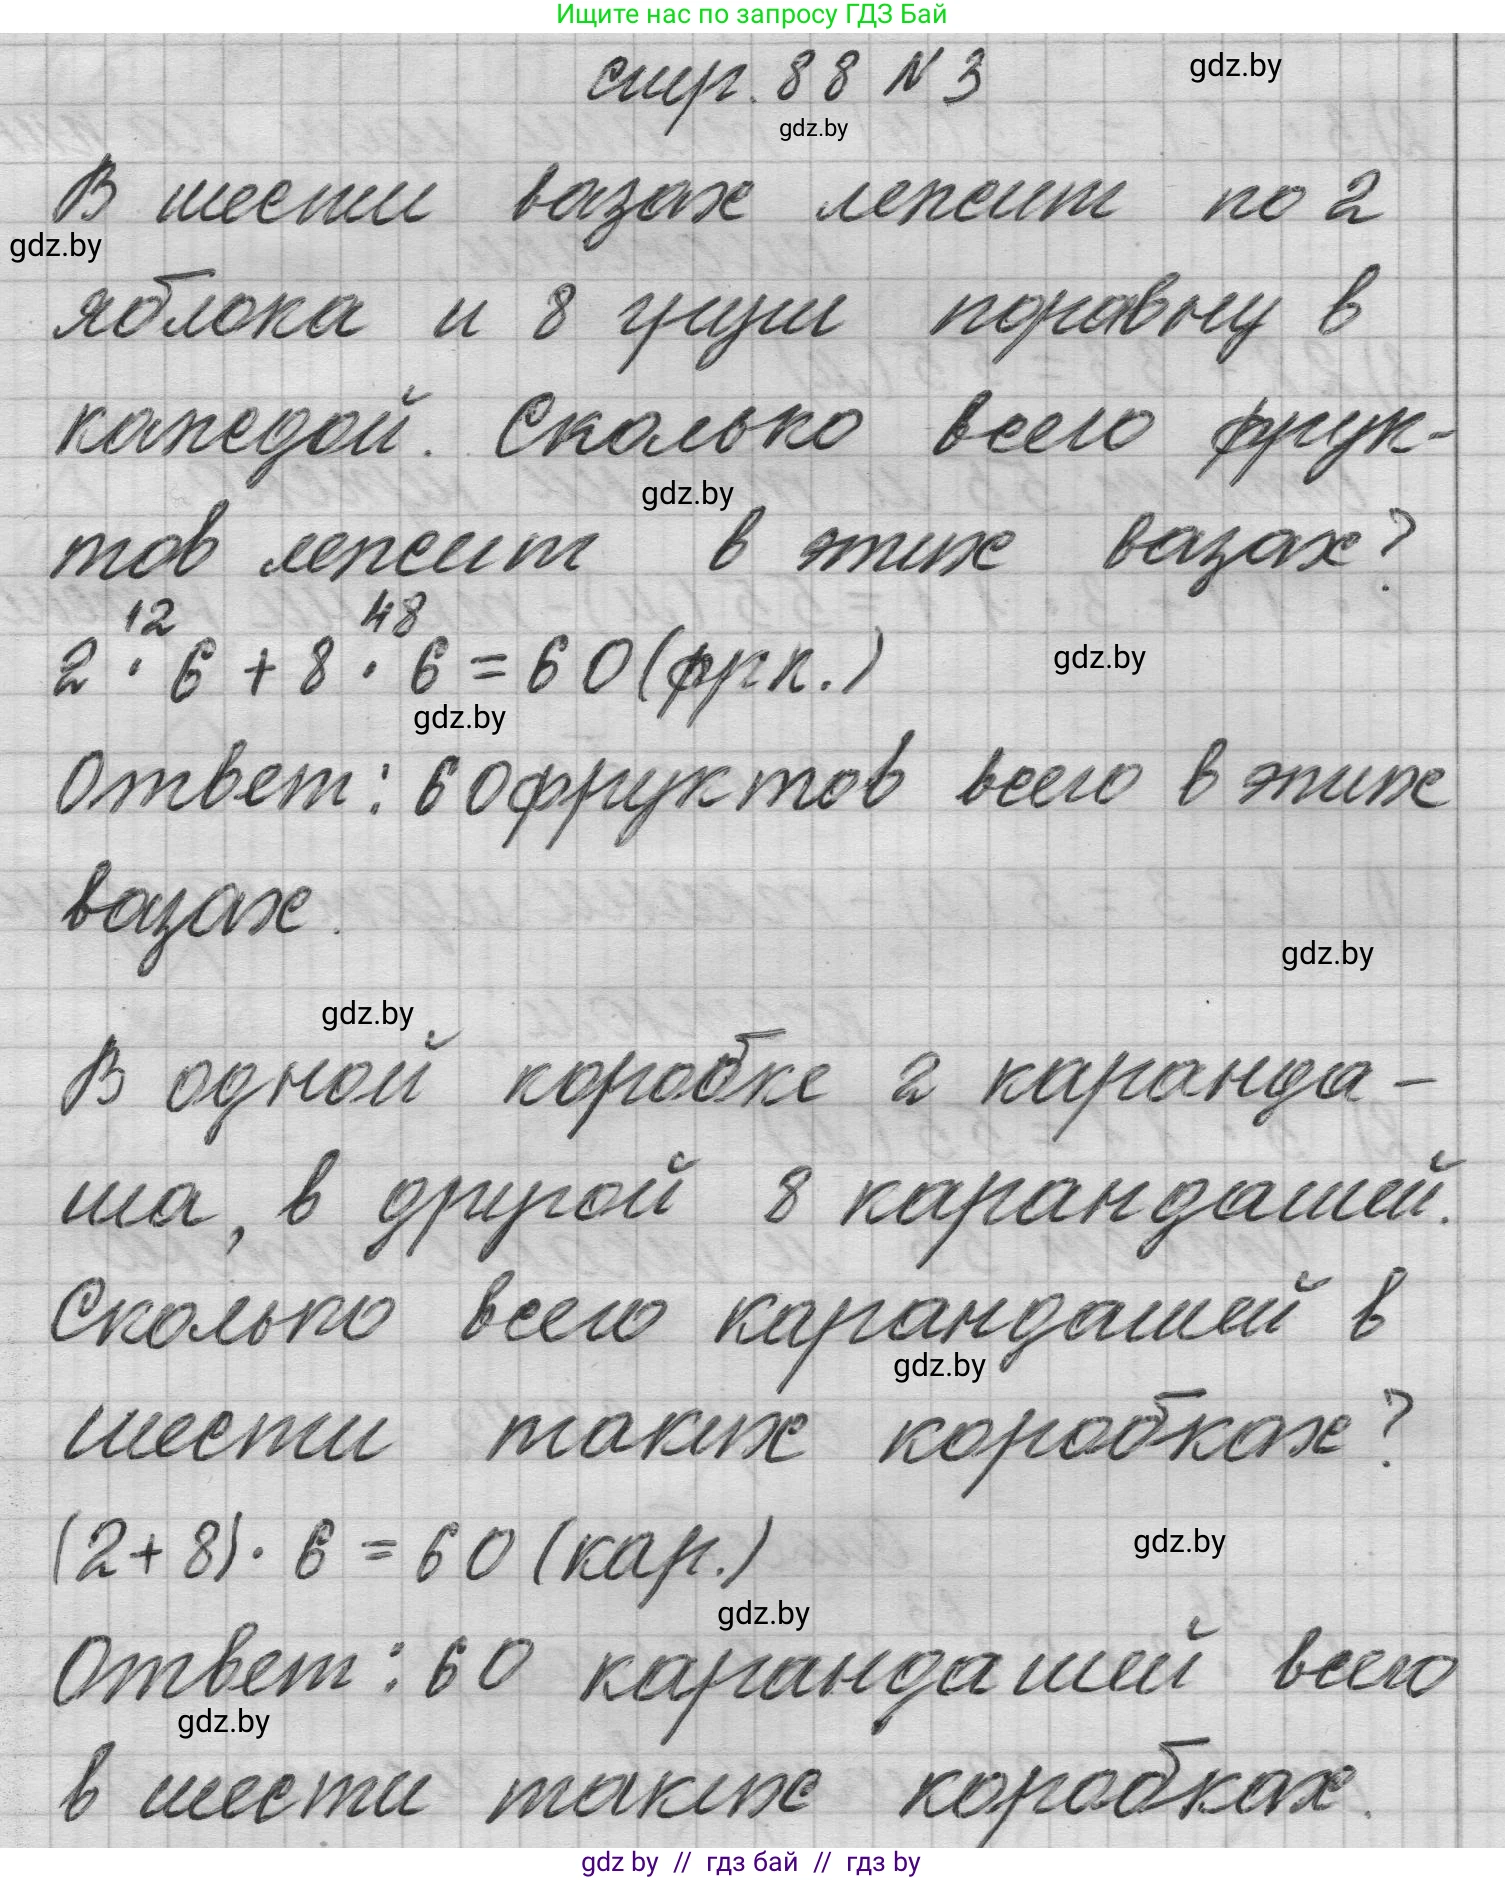 Ищите нас по запросу ГДЗ Бай
стр. 88 № 3
gdz.by
gdz.by
В шести вазах лежит по 2
gdz.by
яблока и 8 груш поравну в
каждой. Сколько всего фрук-
gdz.by
тов лежит в этих вазах?
12 48
2 · 6 + 8 · 6 = 60 (фрк.)
gdz.by
gdz.by
Ответ: 60 фруктов всего в этих
вазах.
gdz.by
gdz.by
В одной коробке 2 каранда-
ша, в другой 8 карандашей.
Сколько всего карандашей в
gdz.by
шести таких коробках?
(2+8) · 6 = 60 (кар.)
gdz.by
gdz.by
Ответ: 60 карандашей всего
gdz.by
в шести таких коробках.
gdz by // гдз бай // гдз by